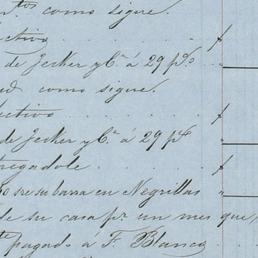 como sigue.
ectivo
de Jecker y Cª á 29 pds
ud como sigue.
ectivo
de Jecker y Cª á 29 pds
tregadole
en Negrillas
de su casa pr. un mes que,
pagado á F. Blanco